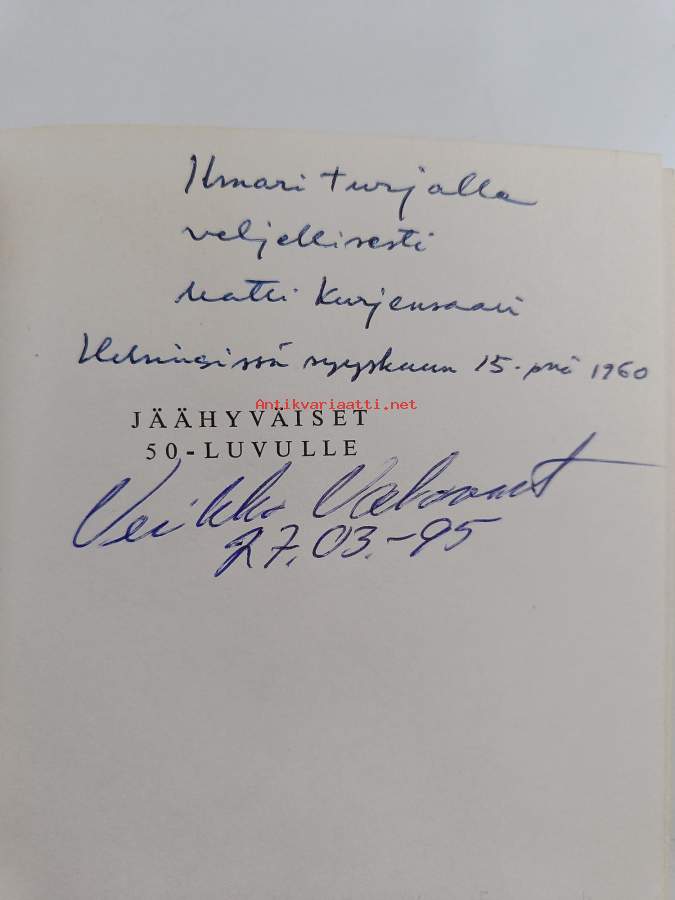 Ilmari Turjalla
veljellisesti
Matti Kurjensaari
Helsingissä syyskuun 15. pnä 1960
Antikvariaatti.net
JÄÄHYVÄISET
50-LUVULLE
Veikko
27.03.-95